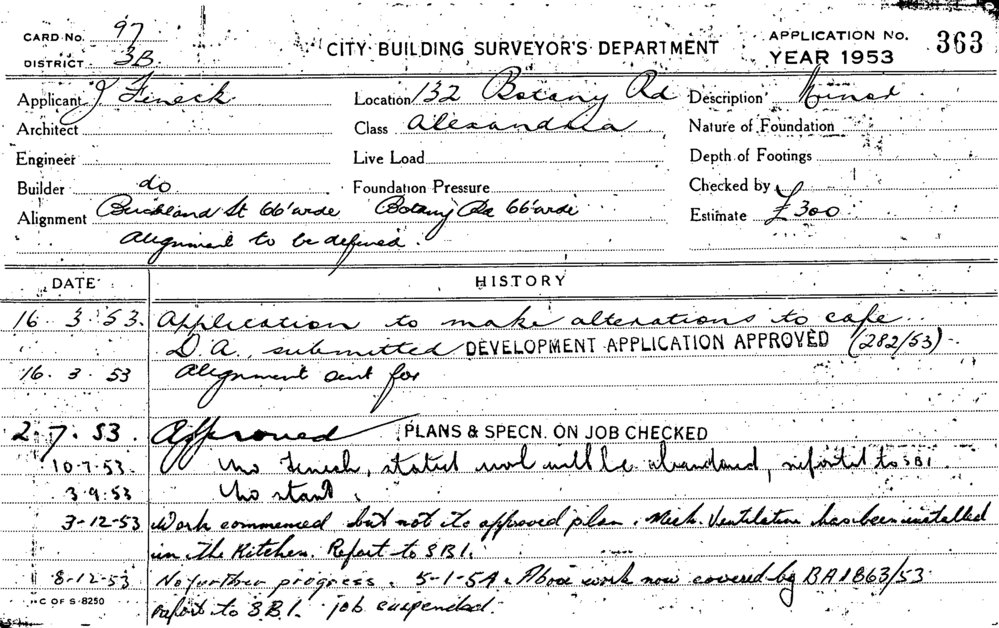 CARD No. 97
DISTRICT 3B.
CITY BUILDING SURVEYOR'S DEPARTMENT
APPLICATION No. 363
YEAR 1953
Applicant J Feneck Location 132 Botany Rd Description Minor
Architect Class Alexandria Nature of Foundation
Engineer Live Load Depth of Footings
Builder do Foundation Pressure Checked by
Alignment Buckland St 66' wide Botany Rd 66' wide Estimate £300
Alignment to be defined.
DATE HISTORY
16 3 53. Application to make alterations to cafe.
D.A. submitted DEVELOPMENT APPLICATION APPROVED (282/53)
16. 3. 53 Alignment sent for
2.7.53. Approved PLANS & SPECN. ON JOB CHECKED
10.7.53. stated will be abandoned, reported to SBI.
3.9.53 No start.
3-12-53 Work commenced but not to approved plan. Mech. Ventilation has been installed
in the Kitchen. Report to S.B.I.
8-12-53 No further progress. 5-1-54. Above work now covered by BA 1863/53
report to S.B.I. job suspended.
C OF S-8250